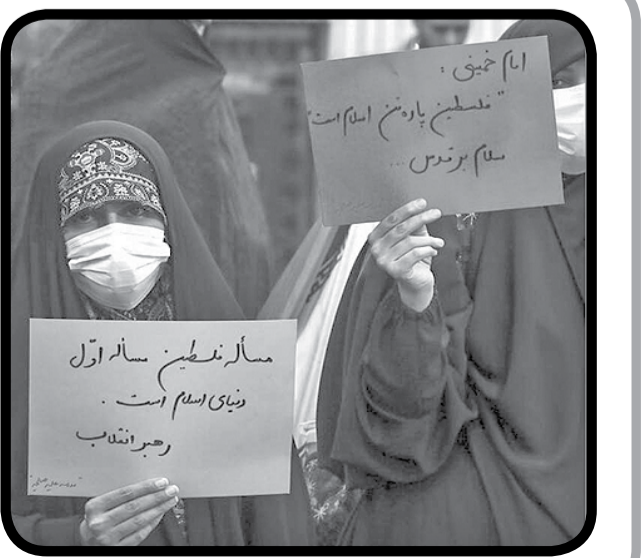 امام خمینی :
"فلسطین پاره تن اسلام است"
سلام بر قدس ...
مسأله فلسطین مسأله اوّل
دنیای اسلام است .
رهبر انقلاب